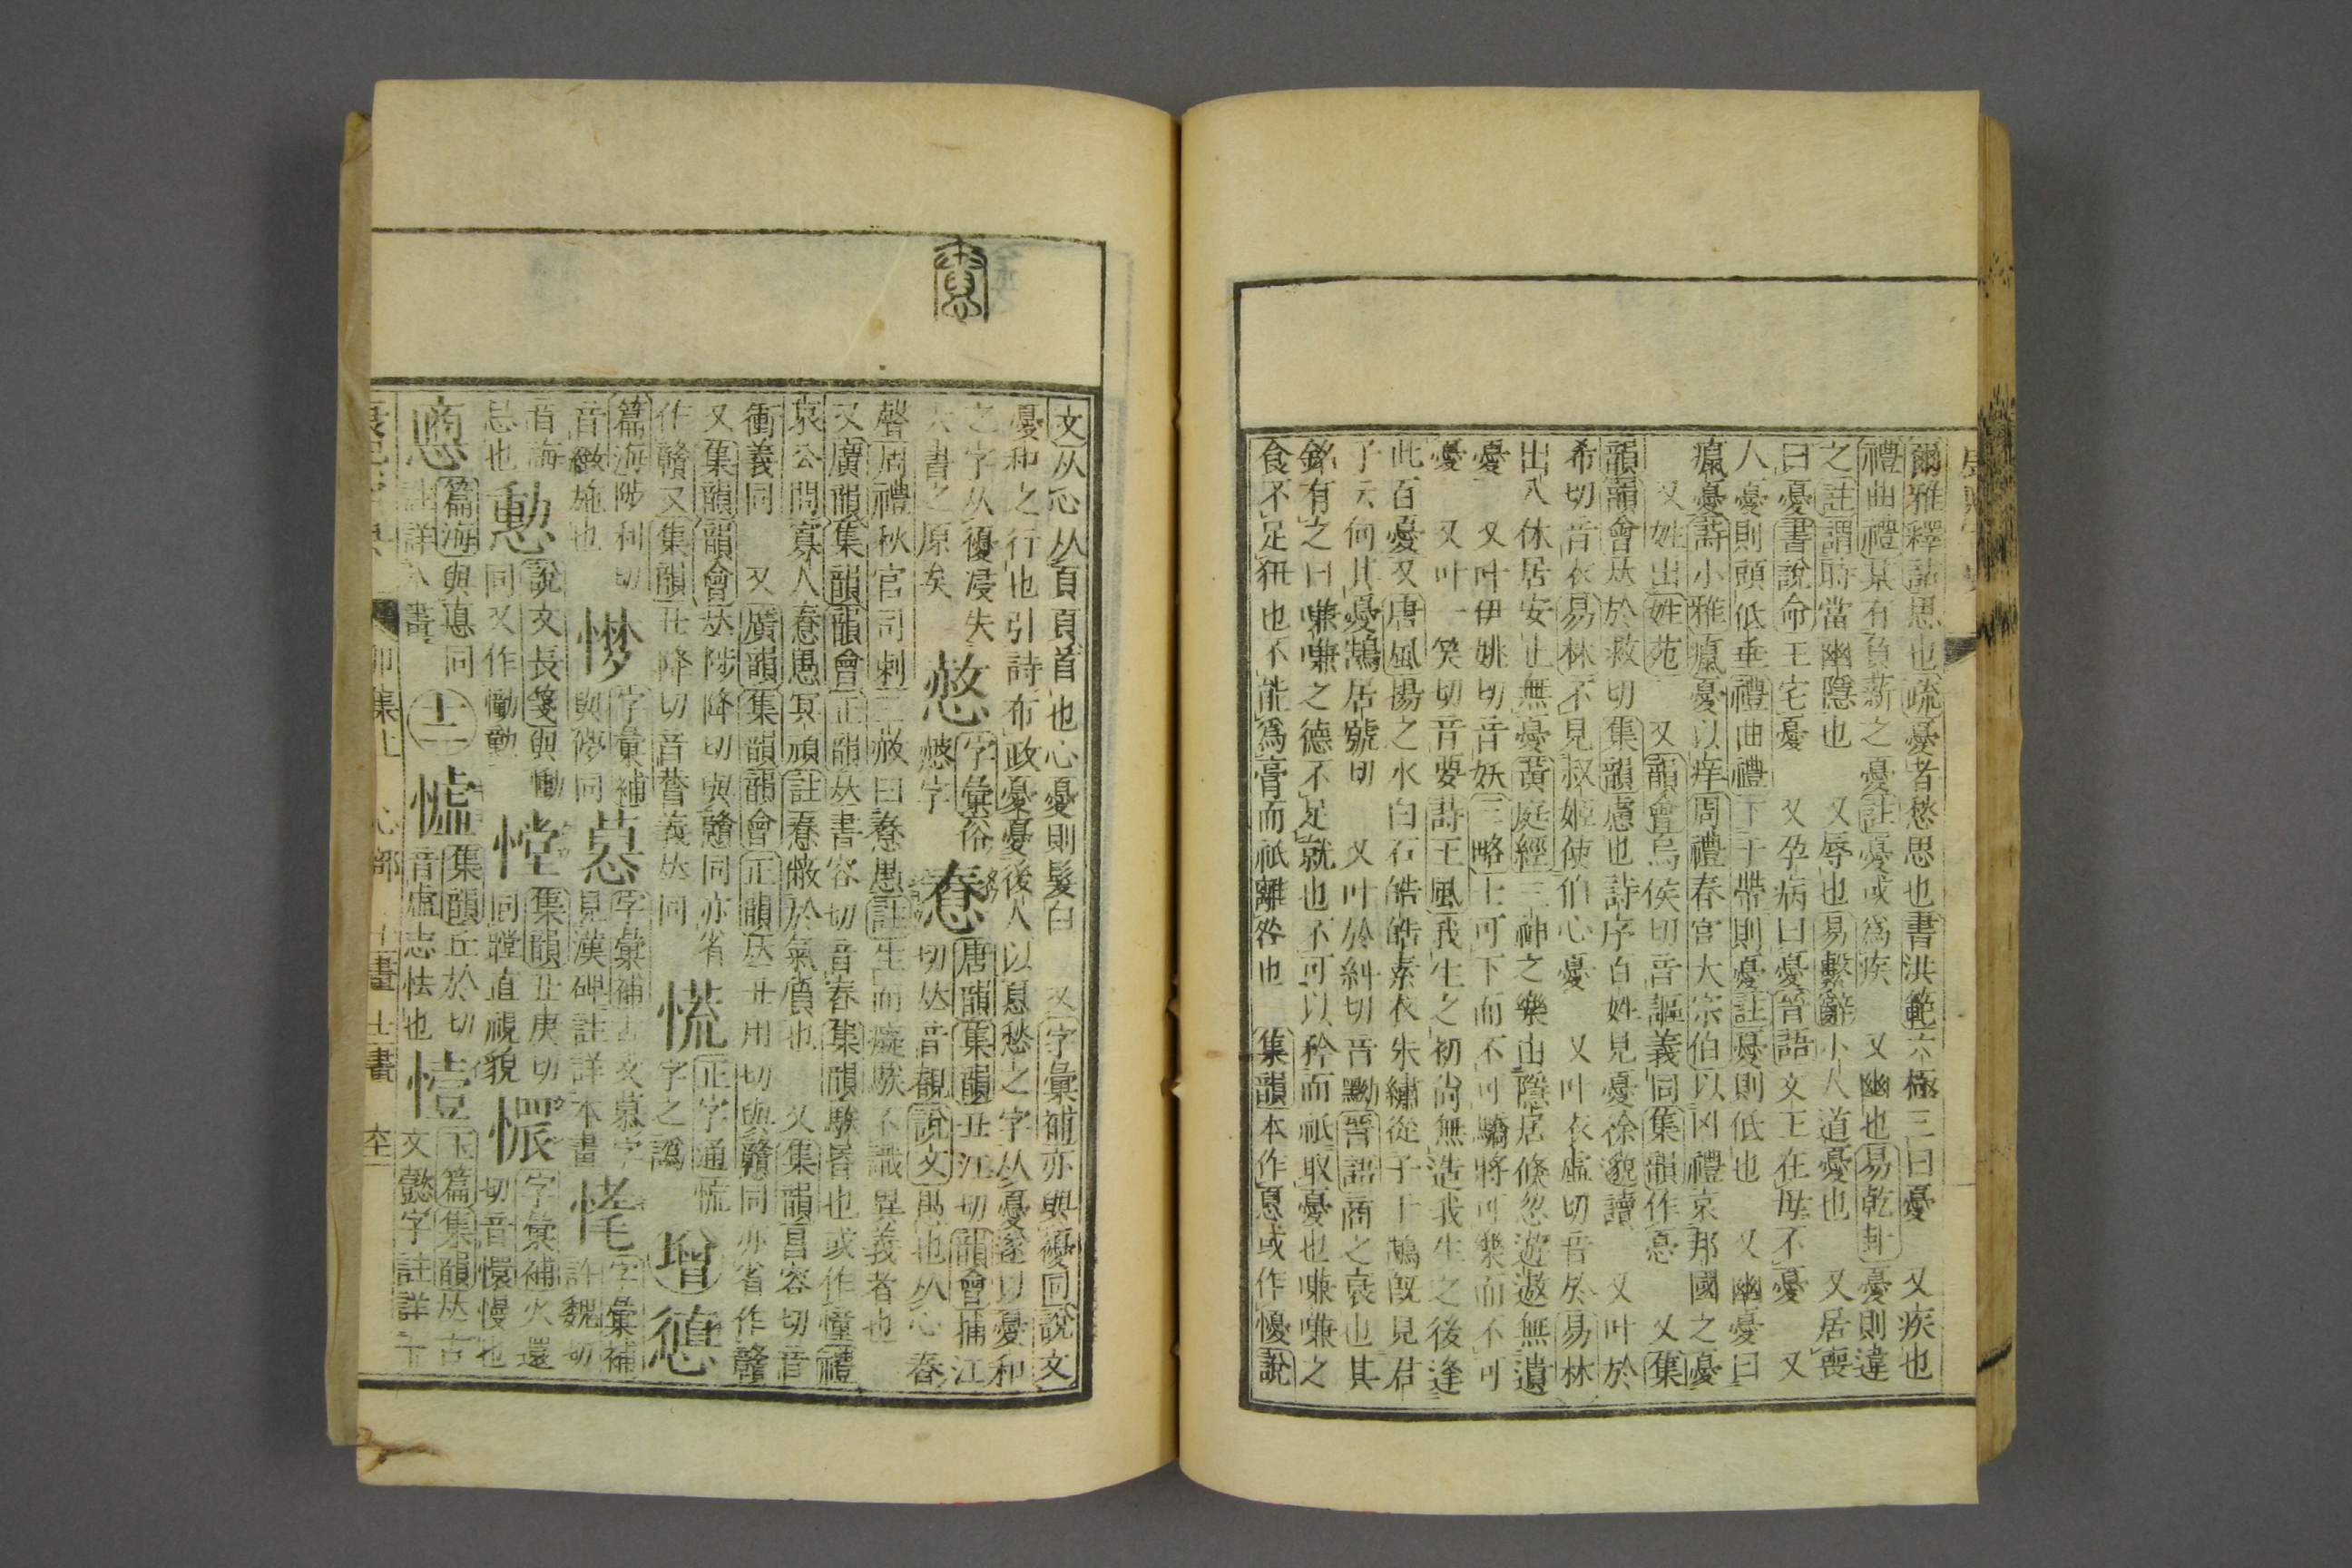 爾雅釋詁思也疏憂者愁思也書洪範六極三曰憂 又疾也
禮曲禮某有負薪之憂註憂或爲疾 又幽也易乾卦憂則違
之註謂時當幽隱也 又辱也易繫辭小人道憂也 又居喪
曰憂書說命王宅憂 又孕病曰憂晉語文王在母不憂 又
人憂則頭低垂禮曲禮下于帶則憂註憂則低也 又幽憂曰
癙憂詩小雅癙憂以痒周禮春官大宗伯以凶禮哀邦國之憂
又姓出姓苑 又韻會烏侯切音謳義同集韻作㥑 又集
韻韻會𠀤於救切集韻慮也詩序百姓見憂徐邈讀 又叶於
希切音衣易林不見叔姬使伯心憂 又叶衣虛切音於易林
出入休居安止無憂黃庭經三神之樂由隱居倏忽遊遨無遺
憂 又叶伊姚切音妖三略士可下而不可驕將可樂而不可
憂 又叶一笑切音要詩王風我生之初尚無造我生之後逢
此百憂又唐風揚之水白石皓皓素衣朱繡從子于鵠旣見君
子云何其憂鵠居號切 又叶於糾切音黝晉語商之衰也其
銘有之曰嗛嗛之德不足就也不可以矜而祇取憂也嗛嗛之
食不足狃也不能爲膏而祇離咎也 集韻本作㥑或作懮說
文从心从頁頁首也心憂則髮白 又字彙補亦與優同說文
憂和之行也引詩布政憂憂後人以㥑愁之字从憂遂以憂和
之字从優浸失 字彙俗 唐韻集韻丑江切韻會摏江
六書之原矣 憋 憨字 惷 切𠀤音覩說文愚也从心舂
聲周禮秋官司刺三赦曰惷愚註生而癡騃不識異義者也
又廣韻集韻韻會正韻𠀤書容切音舂集韻騃昬也或作憧禮
哀公問寡人惷愚冥頑註惷蔽於氣質也 又集韻昌容切音
衝義同 又廣韻集韻韻會正韻𠀤丑用切與贛同亦省作贛
又集韻韻會𠀤陟降切與戇同亦省 正字通慌
作贛又集韻丑降切音䔈義𠀤同 慌 字之譌 增 㥁
篇海陟利切 字彙補 字彙補古文慕字 字彙補
音緻施也 㦊 與㦊同 惎 見漢碑註詳本畫 㤥 許魏切
音海 說文長箋與慟 集韻丑庚切 字彙補火還
忌也 慟 同又作慟動 憆 同瞠直視貌 㦥 切音懁慢也
篇海與悳同 集韻丘於切 玉篇集韻𠀤古
㥁 註詳八畫 十二 㥘 音虛志怯也 憘 文懿字註詳十
卯集上 心部 十一畫 十二畫